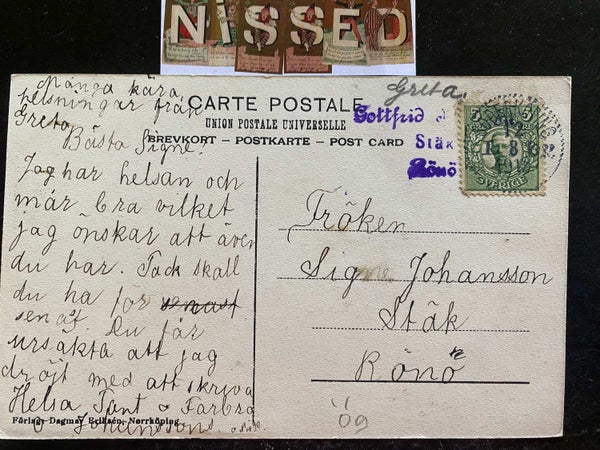 NISSED
Många kära
helsningar från
Greta
Bästa Signe!
Jag har helsan och
mår bra vilket
jag önskar att även
du har. Tack skall
du ha för senast
senast Du får
ursäkta att jag
dröjt med att skriva
Helsa Tant o Farbro
Johanssons.
Förlag: Dagmar Eriksen, Norrköping.
CARTE POSTALE
UNION POSTALE UNIVERSELLE
BREVKORT – POSTKARTE – POST CARD
Greta
Gottfrid
Stäk
Rönö
5 5
SVERIGE
Fröken
Signe Johansson
Stäk
Rönö
Ög